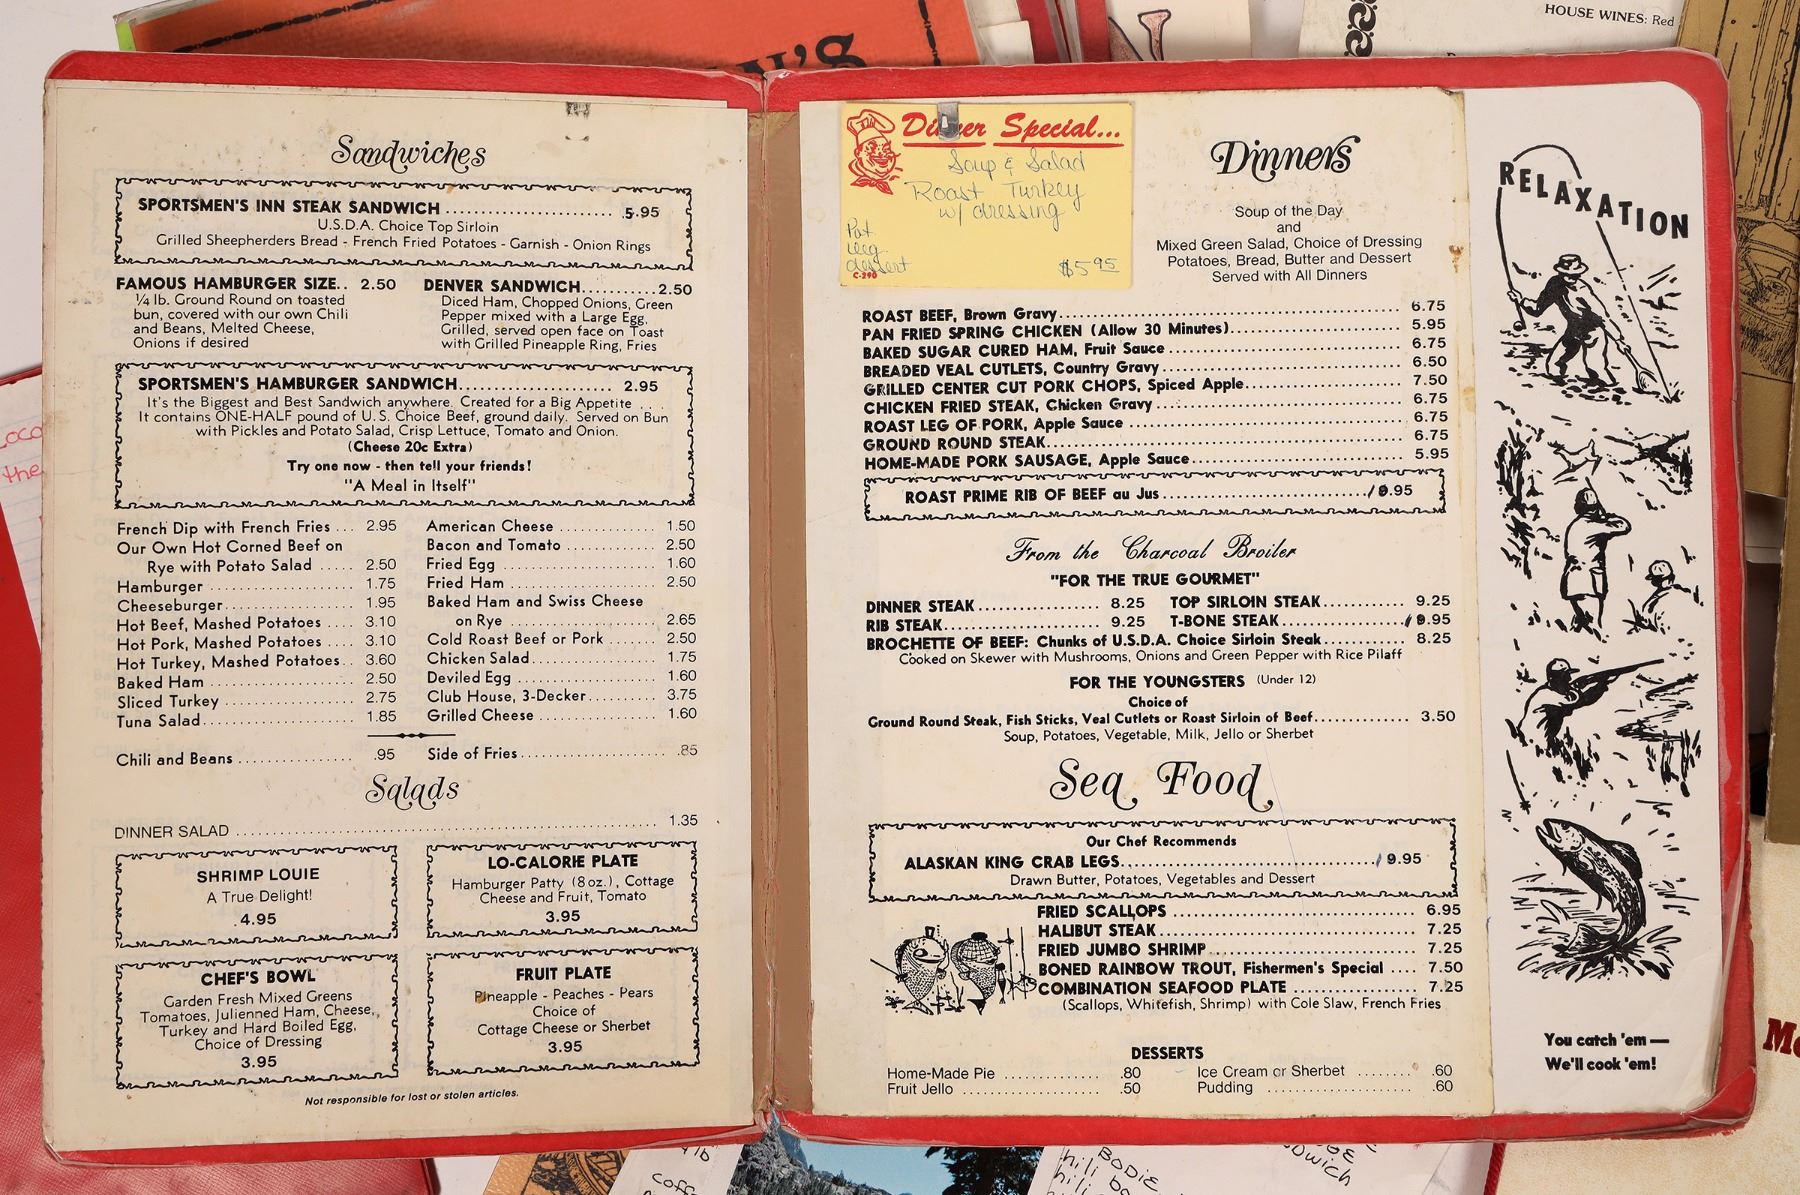 HOUSE WINES: Red
Sandwiches
SPORTSMEN'S INN STEAK SANDWICH ........................ 5.95
U.S.D.A. Choice Top Sirloin
Grilled Sheepherders Bread - French Fried Potatoes - Garnish - Onion Rings
FAMOUS HAMBURGER SIZE.. 2.50
¼ lb. Ground Round on toasted
bun, covered with our own Chili
and Beans, Melted Cheese,
Onions if desired
DENVER SANDWICH...........2.50
Diced Ham, Chopped Onions, Green
Pepper mixed with a Large Egg,
Grilled, served open face on Toast
with Grilled Pineapple Ring, Fries
SPORTSMEN'S HAMBURGER SANDWICH...................... 2.95
It's the Biggest and Best Sandwich anywhere. Created for a Big Appetite . . .
It contains ONE-HALF pound of U.S. Choice Beef, ground daily. Served on Bun
with Pickles and Potato Salad, Crisp Lettuce, Tomato and Onion.
(Cheese 20c Extra)
Try one now - then tell your friends!
"A Meal in Itself"
French Dip with French Fries ... 2.95
Our Own Hot Corned Beef on
Rye with Potato Salad ..... 2.50
Hamburger ................... 1.75
Cheeseburger................ 1.95
Hot Beef, Mashed Potatoes .... 3.10
Hot Pork, Mashed Potatoes .... 3.10
Hot Turkey, Mashed Potatoes.. 3.60
Baked Ham ................... 2.50
Sliced Turkey ................. 2.75
Tuna Salad.................... 1.85
American Cheese ............. 1.50
Bacon and Tomato ............ 2.50
Fried Egg ..................... 1.60
Fried Ham .................... 2.50
Baked Ham and Swiss Cheese
on Rye .................... 2.65
Cold Roast Beef or Pork ...... 2.50
Chicken Salad................. 1.75
Deviled Egg ................... 1.60
Club House, 3-Decker......... 3.75
Grilled Cheese ................ 1.60
Chili and Beans ............... .95
Side of Fries.................... .85
Salads
DINNER SALAD ........................................................ 1.35
SHRIMP LOUIE
A True Delight!
4.95
LO-CALORIE PLATE
Hamburger Patty (8 oz.), Cottage
Cheese and Fruit, Tomato
3.95
CHEF'S BOWL
Garden Fresh Mixed Greens
Tomatoes, Julienned Ham, Cheese,
Turkey and Hard Boiled Egg,
Choice of Dressing
3.95
FRUIT PLATE
Pineapple - Peaches - Pears
Choice of
Cottage Cheese or Sherbet
3.95
Not responsible for lost or stolen articles.
Dinner Special...
Soup & Salad
Roast Turkey
w/ dressing
Pot
Veg
dessert
$5 95
C-290
Dinners
Soup of the Day
and
Mixed Green Salad, Choice of Dressing
Potatoes, Bread, Butter and Dessert
Served with All Dinners
ROAST BEEF, Brown Gravy............................................. 6.75
PAN FRIED SPRING CHICKEN (Allow 30 Minutes)...................... 5.95
BAKED SUGAR CURED HAM, Fruit Sauce .............................. 6.75
BREADED VEAL CUTLETS, Country Gravy............................... 6.50
GRILLED CENTER CUT PORK CHOPS, Spiced Apple..................... 7.50
CHICKEN FRIED STEAK, Chicken Gravy ................................ 6.75
ROAST LEG OF PORK, Apple Sauce ................................... 6.75
GROUND ROUND STEAK............................................... 6.75
HOME-MADE PORK SAUSAGE, Apple Sauce........................... 5.95
ROAST PRIME RIB OF BEEF au Jus .............................10.95
From the Charcoal Broiler
"FOR THE TRUE GOURMET"
DINNER STEAK................. 8.25
TOP SIRLOIN STEAK........... 9.25
RIB STEAK...................... 9.25
T-BONE STEAK.................10.95
BROCHETTE OF BEEF: Chunks of U.S.D.A. Choice Sirloin Steak........... 8.25
Cooked on Skewer with Mushrooms, Onions and Green Pepper with Rice Pilaff
FOR THE YOUNGSTERS (Under 12)
Choice of
Ground Round Steak, Fish Sticks, Veal Cutlets or Roast Sirloin of Beef............. 3.50
Soup, Potatoes, Vegetable, Milk, Jello or Sherbet
Sea Food
Our Chef Recommends
ALASKAN KING CRAB LEGS................................... 9.95
Drawn Butter, Potatoes, Vegetables and Dessert
FRIED SCALLOPS ................................ 6.95
HALIBUT STEAK.................................. 7.25
FRIED JUMBO SHRIMP........................... 7.25
BONED RAINBOW TROUT, Fishermen's Special .... 7.50
COMBINATION SEAFOOD PLATE ................. 7.25
(Scallops, Whitefish, Shrimp) with Cole Slaw, French Fries
DESSERTS
Home-Made Pie ................ .80
Ice Cream or Sherbet ........ .60
Fruit Jello ..................... .50
Pudding ..................... .60
RELAXATION
You catch 'em —
We'll cook 'em!
the
BODIE